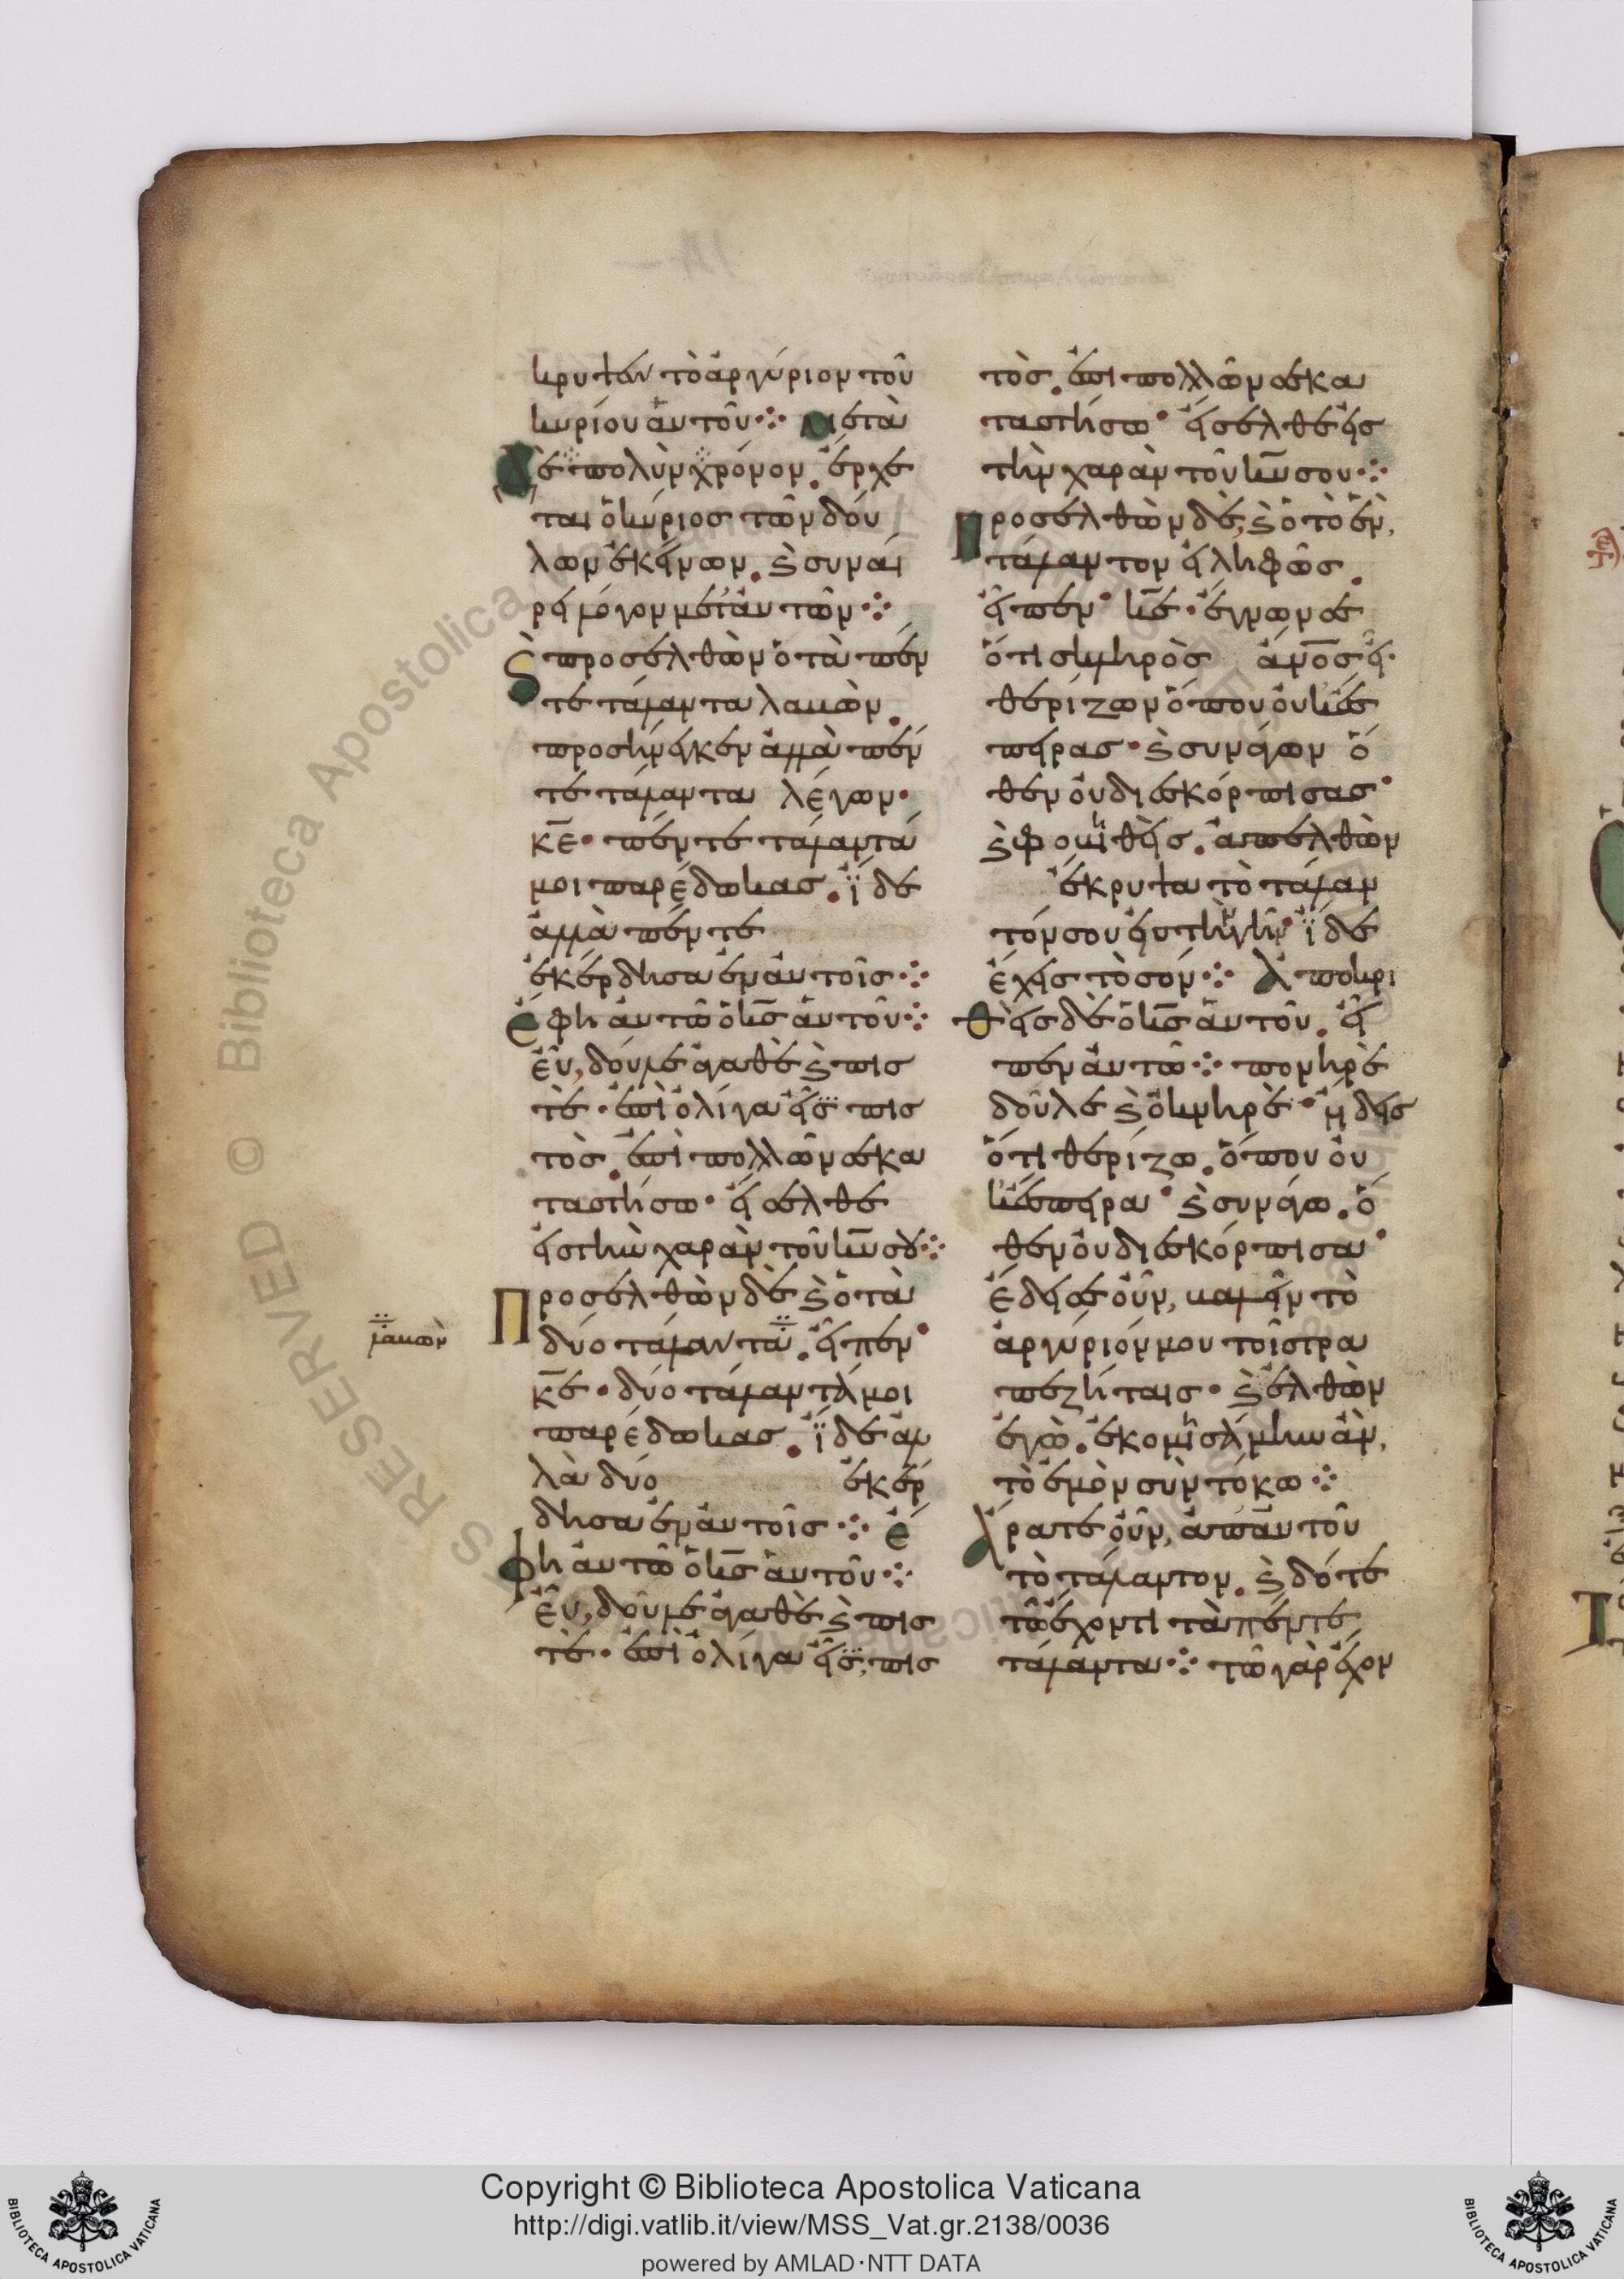 κρυψεν τὸ ἀργύριον τοῦ
κυρίου ἀυτοῦ ⁘ Μετὰ
δὲ πολὺν χρόνον. ἔρχε
ται ὁ κύριος τῶν δού
λων ἐκείνων. ϗ συναί
ρει λόγον μετ' ἀυτῶν ⁘
ϗ προσελθὼν ὁ τὰ πέν
τε τάλαντα λαβὼν.
προσήνεγκεν ἄλλα πέν
τε τάλαντα λέγων·
κε̅· πέντε τάλαντά
μοι παρέδωκας. ἴδε
ἄλλα πέντε
ἐκέρδησα ἐν ἀυτοῖς ⁘
Ἔφη ἀυτῶ ὁ κς̅ ἀυτοῦ ⁘
ἐῦ, δοῦλε ἀγαθὲ ϗ πισ
τὲ· ἐπὶ ὀλίγα εἶς πισ
τὸς. ἐπὶ πολλῶν σε κα
ταστήσω· εἴσελθε
εἰς τὴν χαρὰν τοῦ κυ̅ σου ⁘
Προσελθὼν δὲ ϗ ὁ τὰ
δύο τάλαντα. εἶπεν·
λαβὼν
κε̅· δύο τάλαντά μοι
παρέδωκας. ἴδε ἄλ
λα δύο ἐκέρ
δησα ἐν ἀυτοῖς ⁘ Ἔ
φη ἀυτῶ ὁ κς̅ ἀυτοῦ ⁘
ἐῦ, δοῦλε ἀγαθὲ ϗ πισ
τὲ· ἐπὶ ὀλίγα εἶς, πισ
τὸς. ἐπὶ πολλῶν σε κα
ταστήσω· εἴσελθε εἰς
τὴν χαρὰν τοῦ κυ̅ σου ⁘
Προσελθὼν δὲ, ϗ ὁ τὸ ἓν,
τάλαντον εἰληφῶς.
εἶπεν· κε̅· ἔγνων σε
ὅτι σκληρὸς ἄνο̅ς εἶ·
θερίζων ὅπου οὐκ ἔσ
πειρας· ϗ συνάγων ὅ
θεν οὐ διεσκόρπισας·
ϗ φοβηθεὶς. ἀπελθὼν
ἔκρυψα τὸ τάλαν
τόν σου ἐν τῆ γῆ· ἴδε
ἔχεις τὸ σόν ⁘ Ἀποκρι
θεὶς δὲ ὁ κς̅ ἀυτοῦ. εἶ
πεν ἀυτῶ ⁘ πονηρὲ
δοῦλε ϗ ὀκνηρὲ· ἤδεις
ὅτι θερίζω. ὅπου οὐ
κ ἔσπειρα· ϗ συνάγω. ὅ
θεν οὐ διεσκόρπισα·
ἔδει σε οὖν, βαλεῖν τὸ
ἀργύριόν μου τοῖς τρα
πεζήταις· ϗ ἐλθὼν
ἐγὼ. ἐκομισάμην ἂν,
τὸ ἐμὸν σὺν τόκω ⁘
Ἄρατε οὖν, ἀπ' ἀυτοῦ
τὸ τάλαντον. ϗ δότε
τῶ ἔχοντι τὰ πέντε
τάλαντα ⁘ τῶ γὰρ ἔχον
Copyright © Biblioteca Apostolica Vaticana
http://digi.vatlib.it/view/MSS_Vat.gr.2138/0036
powered by AMLAD·NTT DATA
BIBLIOTECA APOSTOLICA VATICANA
BIBLIOTECA APOSTOLICA VATICANA